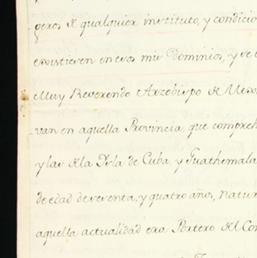 geros de qualquier instituto, y condicio
existieren en esos mis Dominios, y se
Muy Reverendo Arzobispo de Mex
van en aquella Provincia que compreh
y las de la Isla de Cuba, y Guathemala
de edad de setenta, y quatro años, Natur
aquella actualidad era Portero del Con